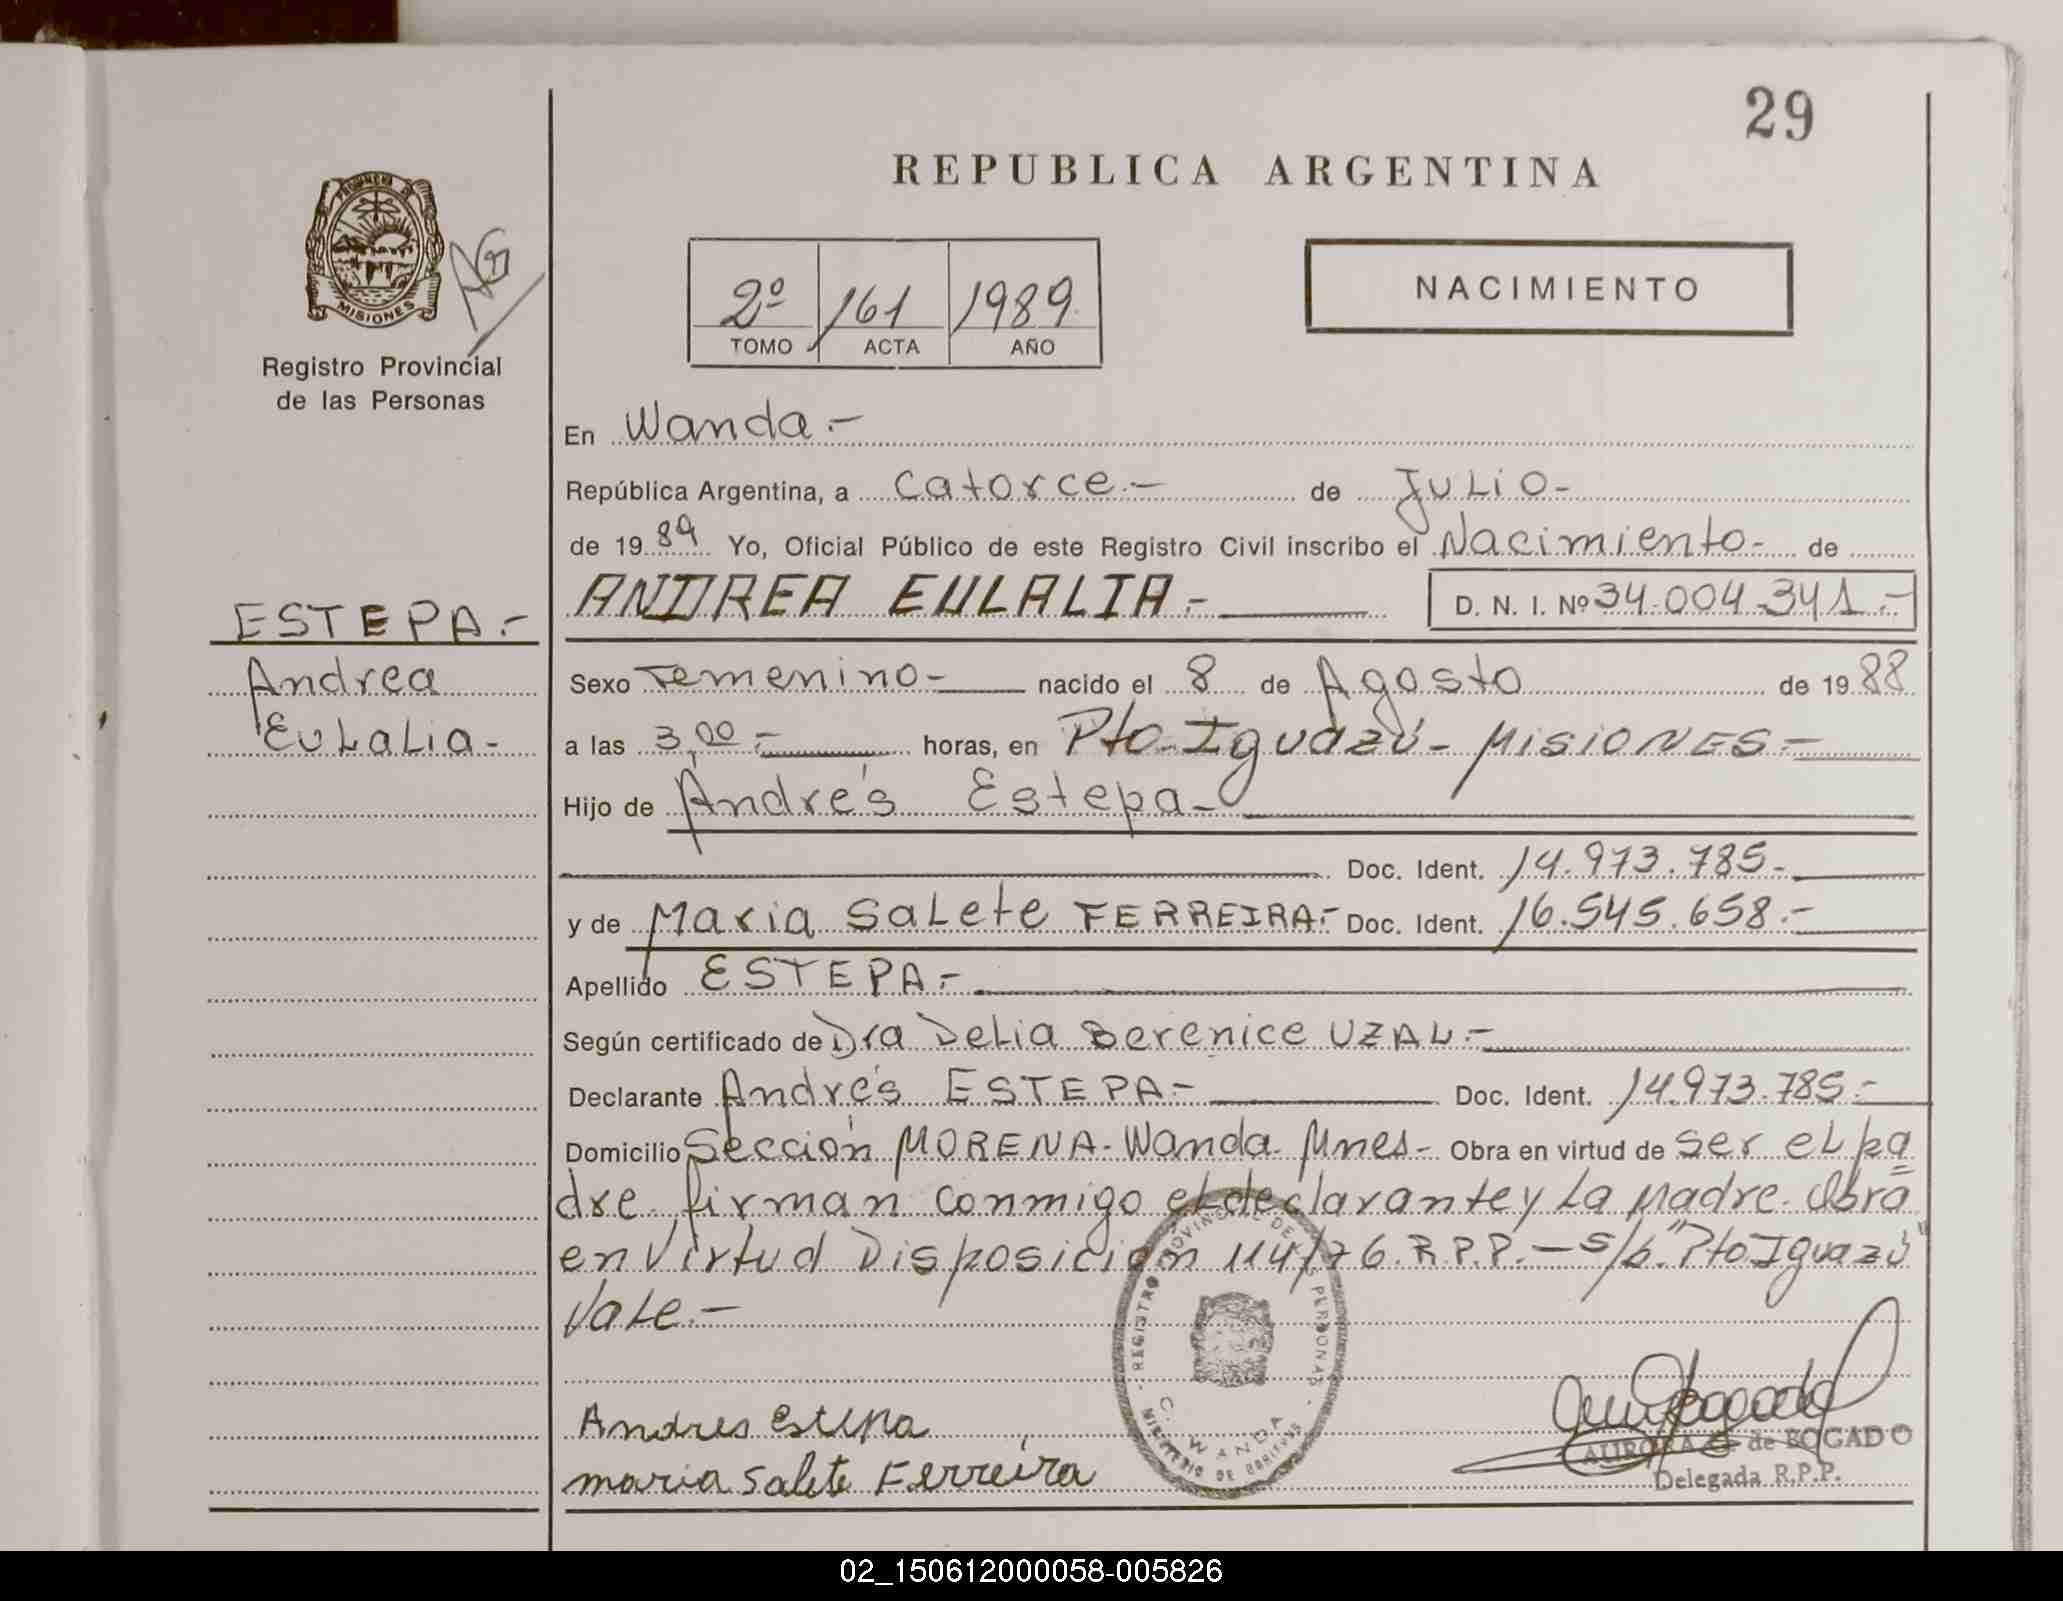 29
REPUBLICA ARGENTINA
PROVINCIA DE
MISIONES
Registro Provincial
de las Personas
2º 161 1989
TOMO ACTA AÑO
NACIMIENTO
En Wanda.-
República Argentina, a catorce.- de Julio-
de 1989 Yo, Oficial Público de este Registro Civil inscribo el Nacimiento- de
ESTEPA.-
ANDREA EULALIA.- D. N. I. Nº 34.004.341.-
Andrea
Eulalia-
Sexo Femenino- nacido el 8 de Agosto de 1988
a las 3,00.- horas, en Pto Iguazú- MISIONES-
Hijo de Andrés Estepa-
Doc. Ident. 14.973.785-
y de Maria Salete FERREIRA.- Doc. Ident. 16.545.658.-
Apellido ESTEPA.-
Según certificado de Dra Delia Berenice UZAL.-
Declarante Andrés ESTEPA- Doc. Ident. 14.973.785.-
Domicilio Sección MORENA- Wanda- Mnes- Obra en virtud de ser el pa
dre. firman conmigo el declarante y la Madre. Obra
en Virtud Disposición 114/76. R.P.P.- s/b. "Pto Iguazú"
Vale.-
REGISTRO PROVINCIAL DE LAS PERSONAS
C. WANDA
MINISTERIO DE GOBIERNO
Andres Estepa
maria Salete Ferreira
AURORA de BOGADO
Delegada R.P.P.
02_150612000058-005826